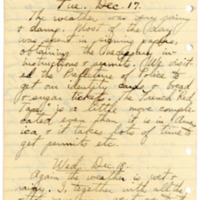 Tue. Dec. 17.
The weather was very rainy
& damp. Most of the day
was spent in
obtaining the necessary in-
structions & permits. We visit-
ed the Prefecture of Police to
get our identity cards & bread
& sugar tickets. The French Red
Tape is a little more compli-
cated even than it is in Amer-
ica & it takes lots of time to
get permits etc.
Wed. Dec. 18.
Again the weather is wet &
rainy. I, together with all the